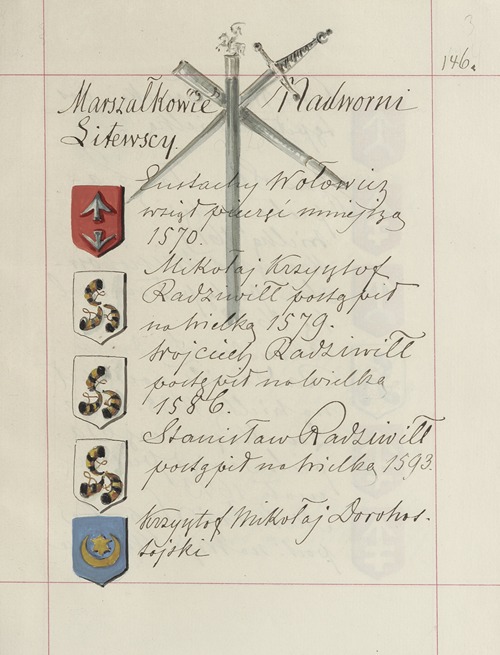 146.
Marszałkowie Nadworni
Litewscy.
Eustachy Wołowicz
wziął pieczęć mniejszą
1570.
Mikołaj Krzysztof
Radziwiłł postąpił
na wielką 1579.
Wojciech Radziwiłł
postąpił na wielką
1586.
Stanisław Radziwiłł
postąpił na wielką 1593.
Krzysztof Mikołaj Dorohos-
tajski